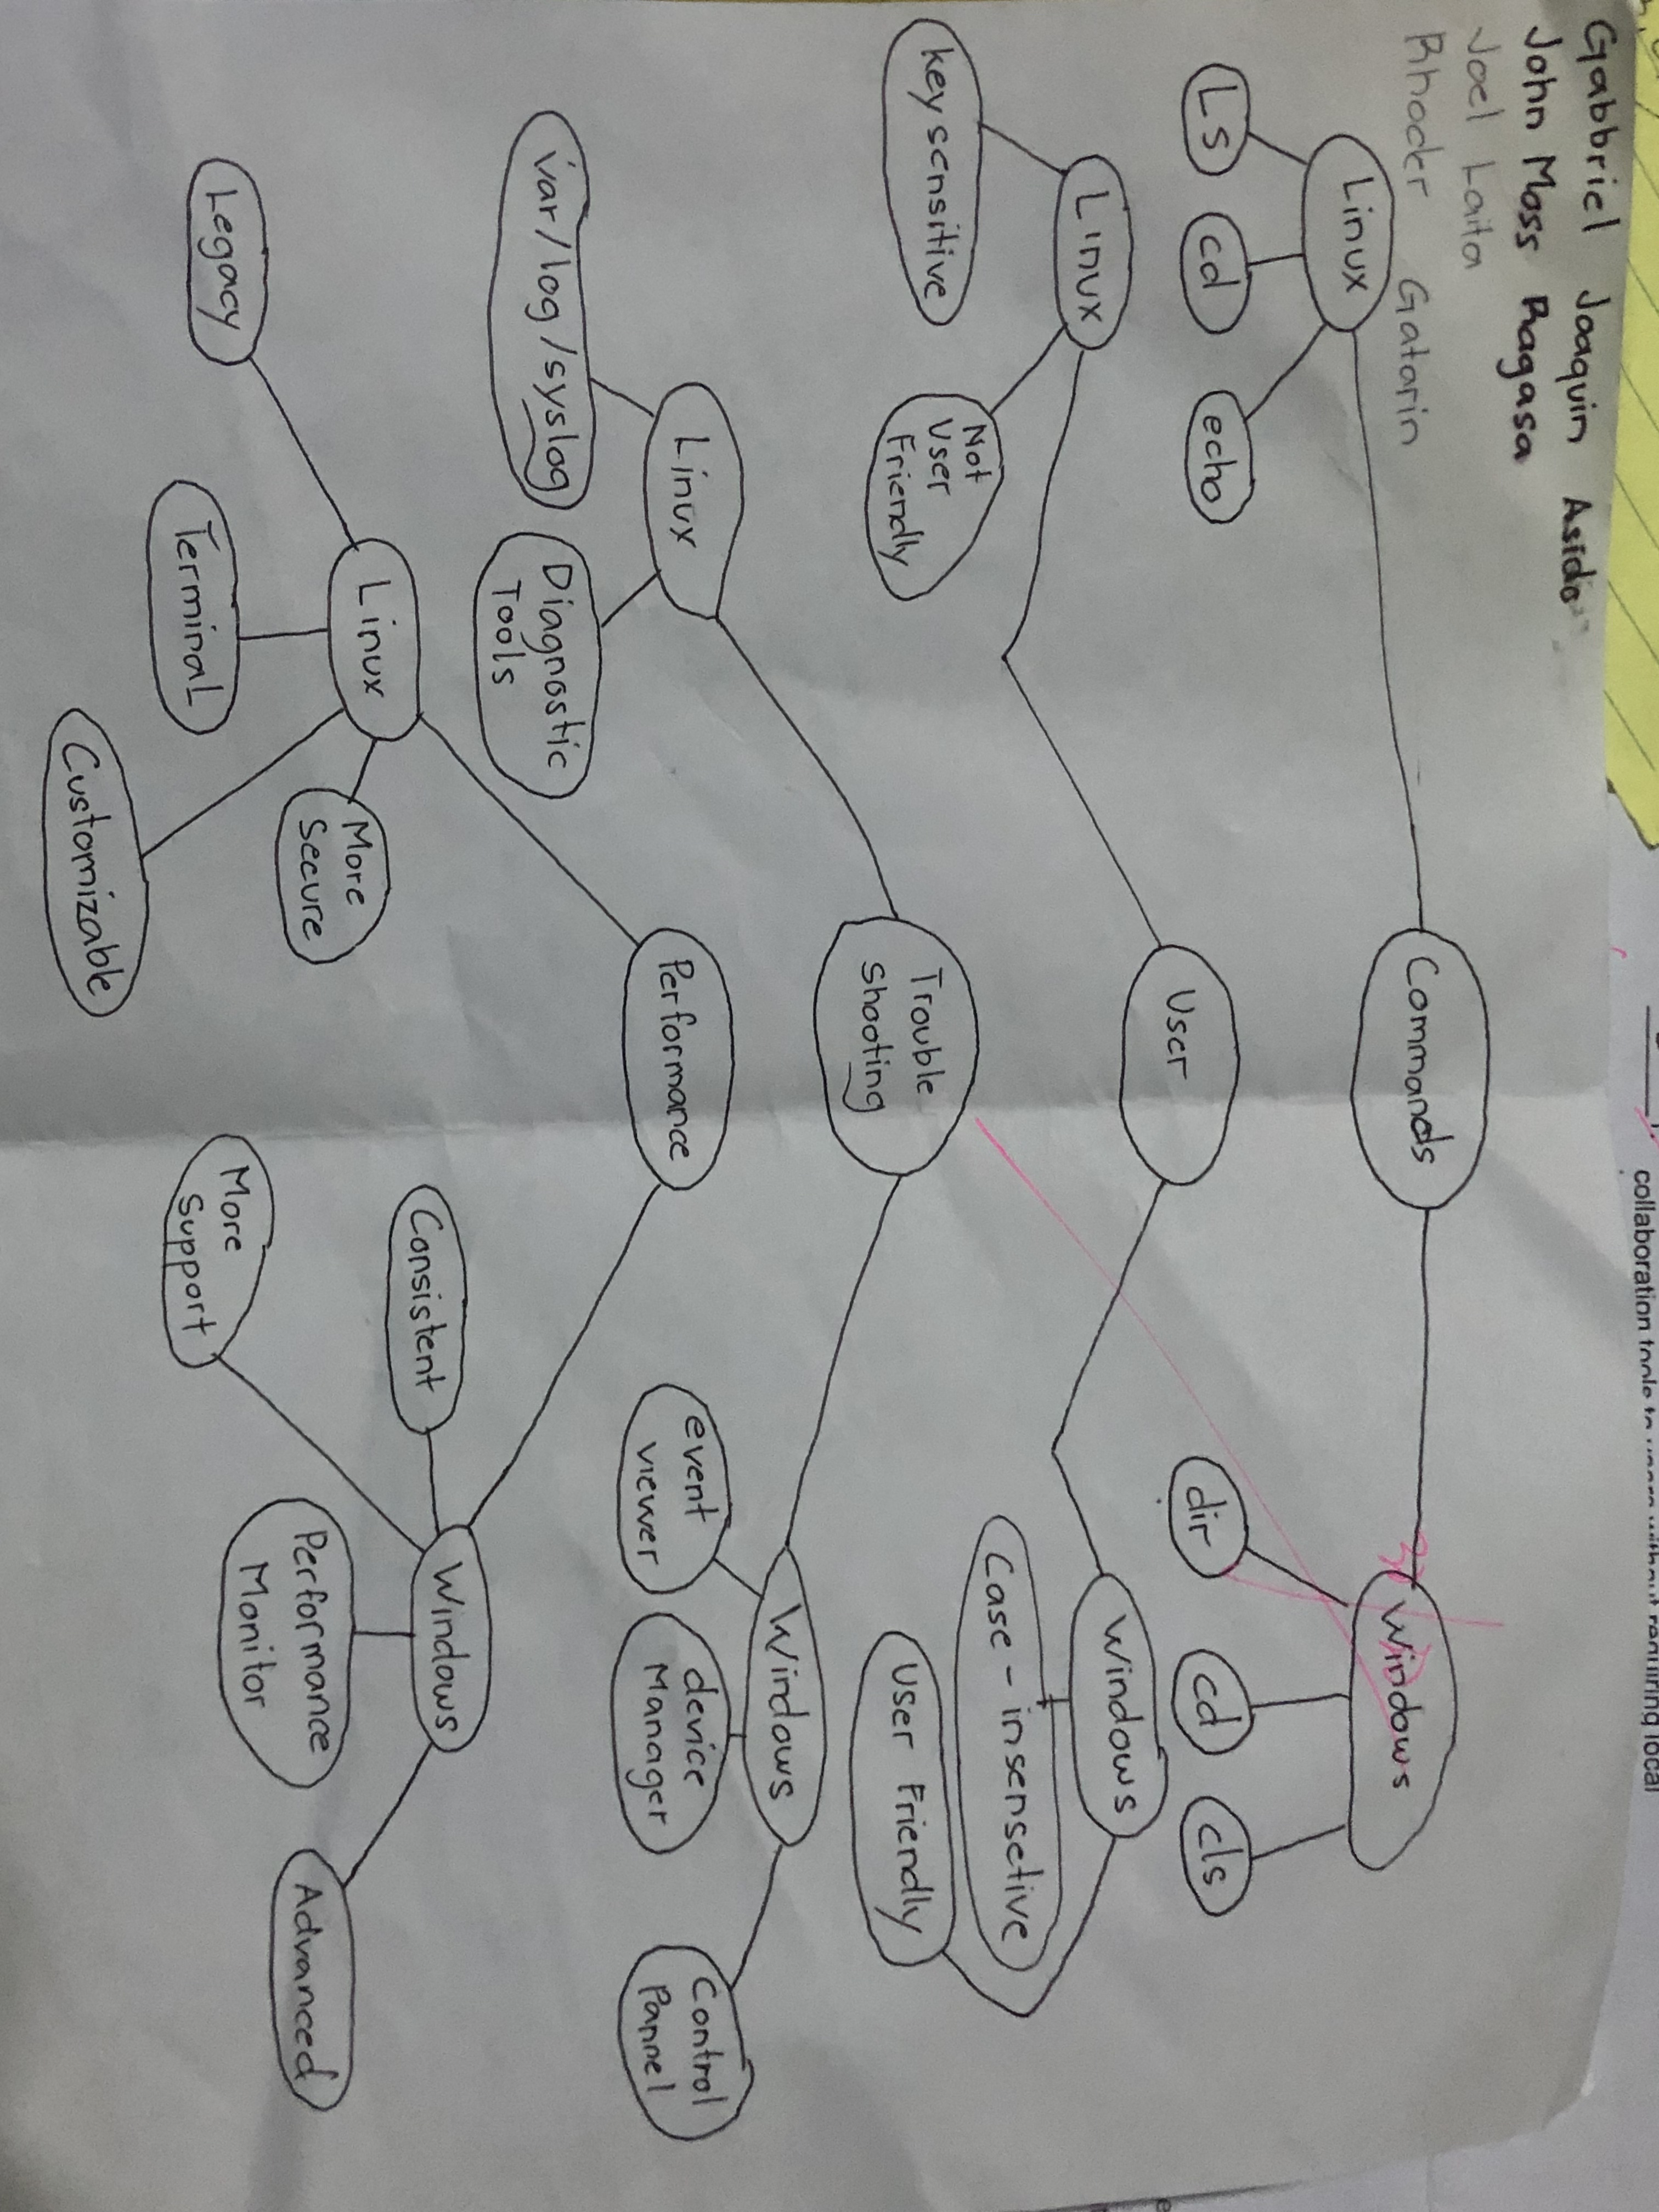 collaboration tools to
Gabbriel Joaquin Asido
John Moss Ragasa
Joel Laita
Rhoder Gatarin
Commands
Linux
Ls
cd
echo
Windows
dir
cd
cls
User
Linux
key sensitive
Not
User
Friendly
Windows
Case - insensetive
User Friendly
Trouble
shooting
Linux
var/log/syslog
Diagnostic
Tools
Windows
event
viewer
device
Manager
Control
Pannel
Performance
Linux
Legacy
Terminal
More
Secure
Customizable
Windows
Consistent
More
Support
Performance
Monitor
Advanced